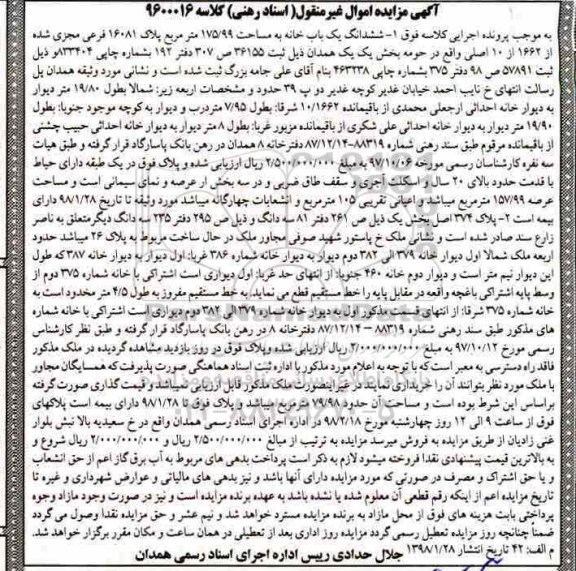 آگهی مزایده اموال غیرمنقول( اسناد رهنی) کلاسه ۹۶۰۰۰۱۶
به موجب پرونده اجرایی کلاسه فوق ۱- ششدانگ یک باب خانه به مساحت ۱۷۵/۹۹ متر مربع پلاک ۱۶۰۸۱ فرعی مجزی شده
از ۱۶۶۲ از ۱۰ اصلی واقع در حومه بخش یک همدان ذیل ثبت ۳۶۱۵۵ ص ۳۰۷ دفتر ۱۹۲ بشماره چاپی ۸۳۳۴۰۴و ذیل
ثبت ۵۷۸۹۱ ص ۹۸ دفتر ۳۷۵ بشماره چاپی ۴۶۳۲۳۸ بنام آقای علی جامه بزرگ ثبت شده است و نشانی مورد وثیقه همدان پل
رسالت انتهای خ نایب احمد خیابان غدیر کوچه غدیر دو پ ۳۹ حدود و مشخصات اربعه زیر: شمالا بطول ۱۹/۸۰ متر دیوار
به دیوار خانه احداثی ارجعلی محمدی از باقیمانده ۱۰/۱۶۶۲ شرقا: بطول ۷/۹۵ متردرب و دیوار به کوچه موجود جنوبا: بطول
۱۹/۹۰ متر دیوار به دیوار خانه احداثی علی شکری از باقیمانده مزبور غربا: بطول ۸ متر دیوار به دیوار خانه احداثی حبیب چشتی
از باقیمانده مرقوم طبق سند رهنی شماره ۸۸۳۱۹-۸۷/۱۲/۱۴ دفترخانه ۸ همدان در رهن بانک پاسارگاد قرار گرفته و طبق هیات
سه نفره کارشناسان رسمی مورخه ۹۷/۱۰/۰۶ به مبلغ ۲/۵۰۰/۰۰۰/۰۰۰ ریال ارزیابی شده و پلاک فوق در یک طبقه دارای حیاط
با قدمت حدود بالای ۲۰ سال و اسکلت آجری و سقف طاق ضربی و در سه بخش از عرصه و نمای سیمانی است و مساحت
عرصه ۱۵۷/۹۹ مترمربع میباشد و اعیانی تقریبی ۱۰۵ مترمربع و انشعابات چهارگانه میباشد مورد وثیقه تا تاریخ ۹۸/۱/۲۸ دارای
بیمه است ۲- پلاک ۳۷۴ اصل بخش یک ذیل ص ۲۶۱ دفتر ۸۱ سه دانگ و ذیل ص ۲۹۵ دفتر ۲۳۵ سه دانگ دیگرمتعلق به ناصر
زارع سند صادر شده است و نشانی ملک خ پاستور شهید صوفی مجاور ملک در حال ساخت مربوط به پلاک ۲۶ میباشد حدود
اربعه ملک شمالا اول دیوار خانه ۳۷۹ الی ۳۸۲ دوم دیوار به دیوار خانه شماره ۳۸۶ غربا: اول دیوار به دیوار خانه ۳۸۷ که طول
این دیوار نیم متر است و دیوار دوم خانه ۴۶۰ جنوبا: از انتهای حد غربا: اول دیواری است اشتراکی با خانه شماره ۳۷۵ دوم از
وسط پایه اشتراکی باغچه واقعه در مقابل پایه را خط مستقیم قطع می نماید، به خط مستقیم مفروز به طول ۴/۵ متر محدود است به
خانه شماره ۳۷۵ شرقا: از انتهای حد مذکور اول به دیوار خانه شماره ۳۷۹ الی ۳۸۲ دوم دیواری است اشتراکی با خانه شماره
های مذکور طبق سند رهنی شماره ۸۸۳۱۹ – ۸۷/۱۲/۱۴ دفترخانه ۸ در رهن بانک پاسارگاد قرار گرفته و طبق نظر کارشناس
رسمی مورخ ۹۷/۱۰/۱۲ به مبلغ ۲/۰۰۰/۰۰۰/۰۰۰ ریال ارزیابی شده وپلاک فوق در روز بازدید،مشاهده گردیده در ملک مذکور
فاقد راه دسترسی به معبر است که با توجه به اعلام مورد مذکور با اداره ثبت اسناد هماهنگی صورت پذیرفت که همسایگان مجاور
با ملک مورد نظر بتوانند آن را خریداری نمایند در غیراینصورت ملک مذکور قابل ارزیابی نمیباشد و قیمت گذاری صورت گرفته
براساس این شرط بوده است و مساحت آن حدود ۷۹/۹۸ متر مربع می باشد و پلاک فوق تا ۹۸/۱/۲۸ دارای بیمه است پلاکهای
فوق از ساعت ۹ الی ۱۲ روز چهارشنبه مورخ ۹۸/۲/۱۸ در اداره اجرای اسناد رسمی همدان واقع در خ سعیدیه بالا نبش بلوار
غنی زادیان از طریق مزایده به فروش میرسد مزایده به ترتیب از مبالغ ۲/۵۰۰/۰۰۰/۰۰۰ ریال و ۲/۰۰۰/۰۰۰/۰۰۰ ریال شروع و
به بالاترین قیمت پیشنهادی نقدا فروخته میشود لازم به ذکر است پرداخت بدهی های مربوط به آب برق گاز اعم از حق انشعاب
و یا حق اشتراک و مصرف در صورتی که مورد مزایده دارای آنها باشد و نیز بدهی های مالیاتی و عوارض شهرداری و غیره تا
تاریخ مزایده اعم از اینکه رقم قطعی آن معلوم شده یا نشده باشد به عهده برنده مزایده است و نیز در صورت وجود مازاد وجوه
پرداختی بابت هزینه های فوق از محل مازاد به برنده مزایده مسترد خواهد شد و نیم عشر و حق مزایده نقدا وصول می گردد
ضمنا چنانچه روز مزایده تعطیل رسمی گردد مزایده روز اداری بعد از تعطیلی در همان ساعت و مکان مقرر برگزار خواهد شد.
م الف: ۴۲ تاریخ انتشار ۱۳۹۸/۱/۲۸ جلال حدادی رییس اداره اجرای اسناد رسمی همدان